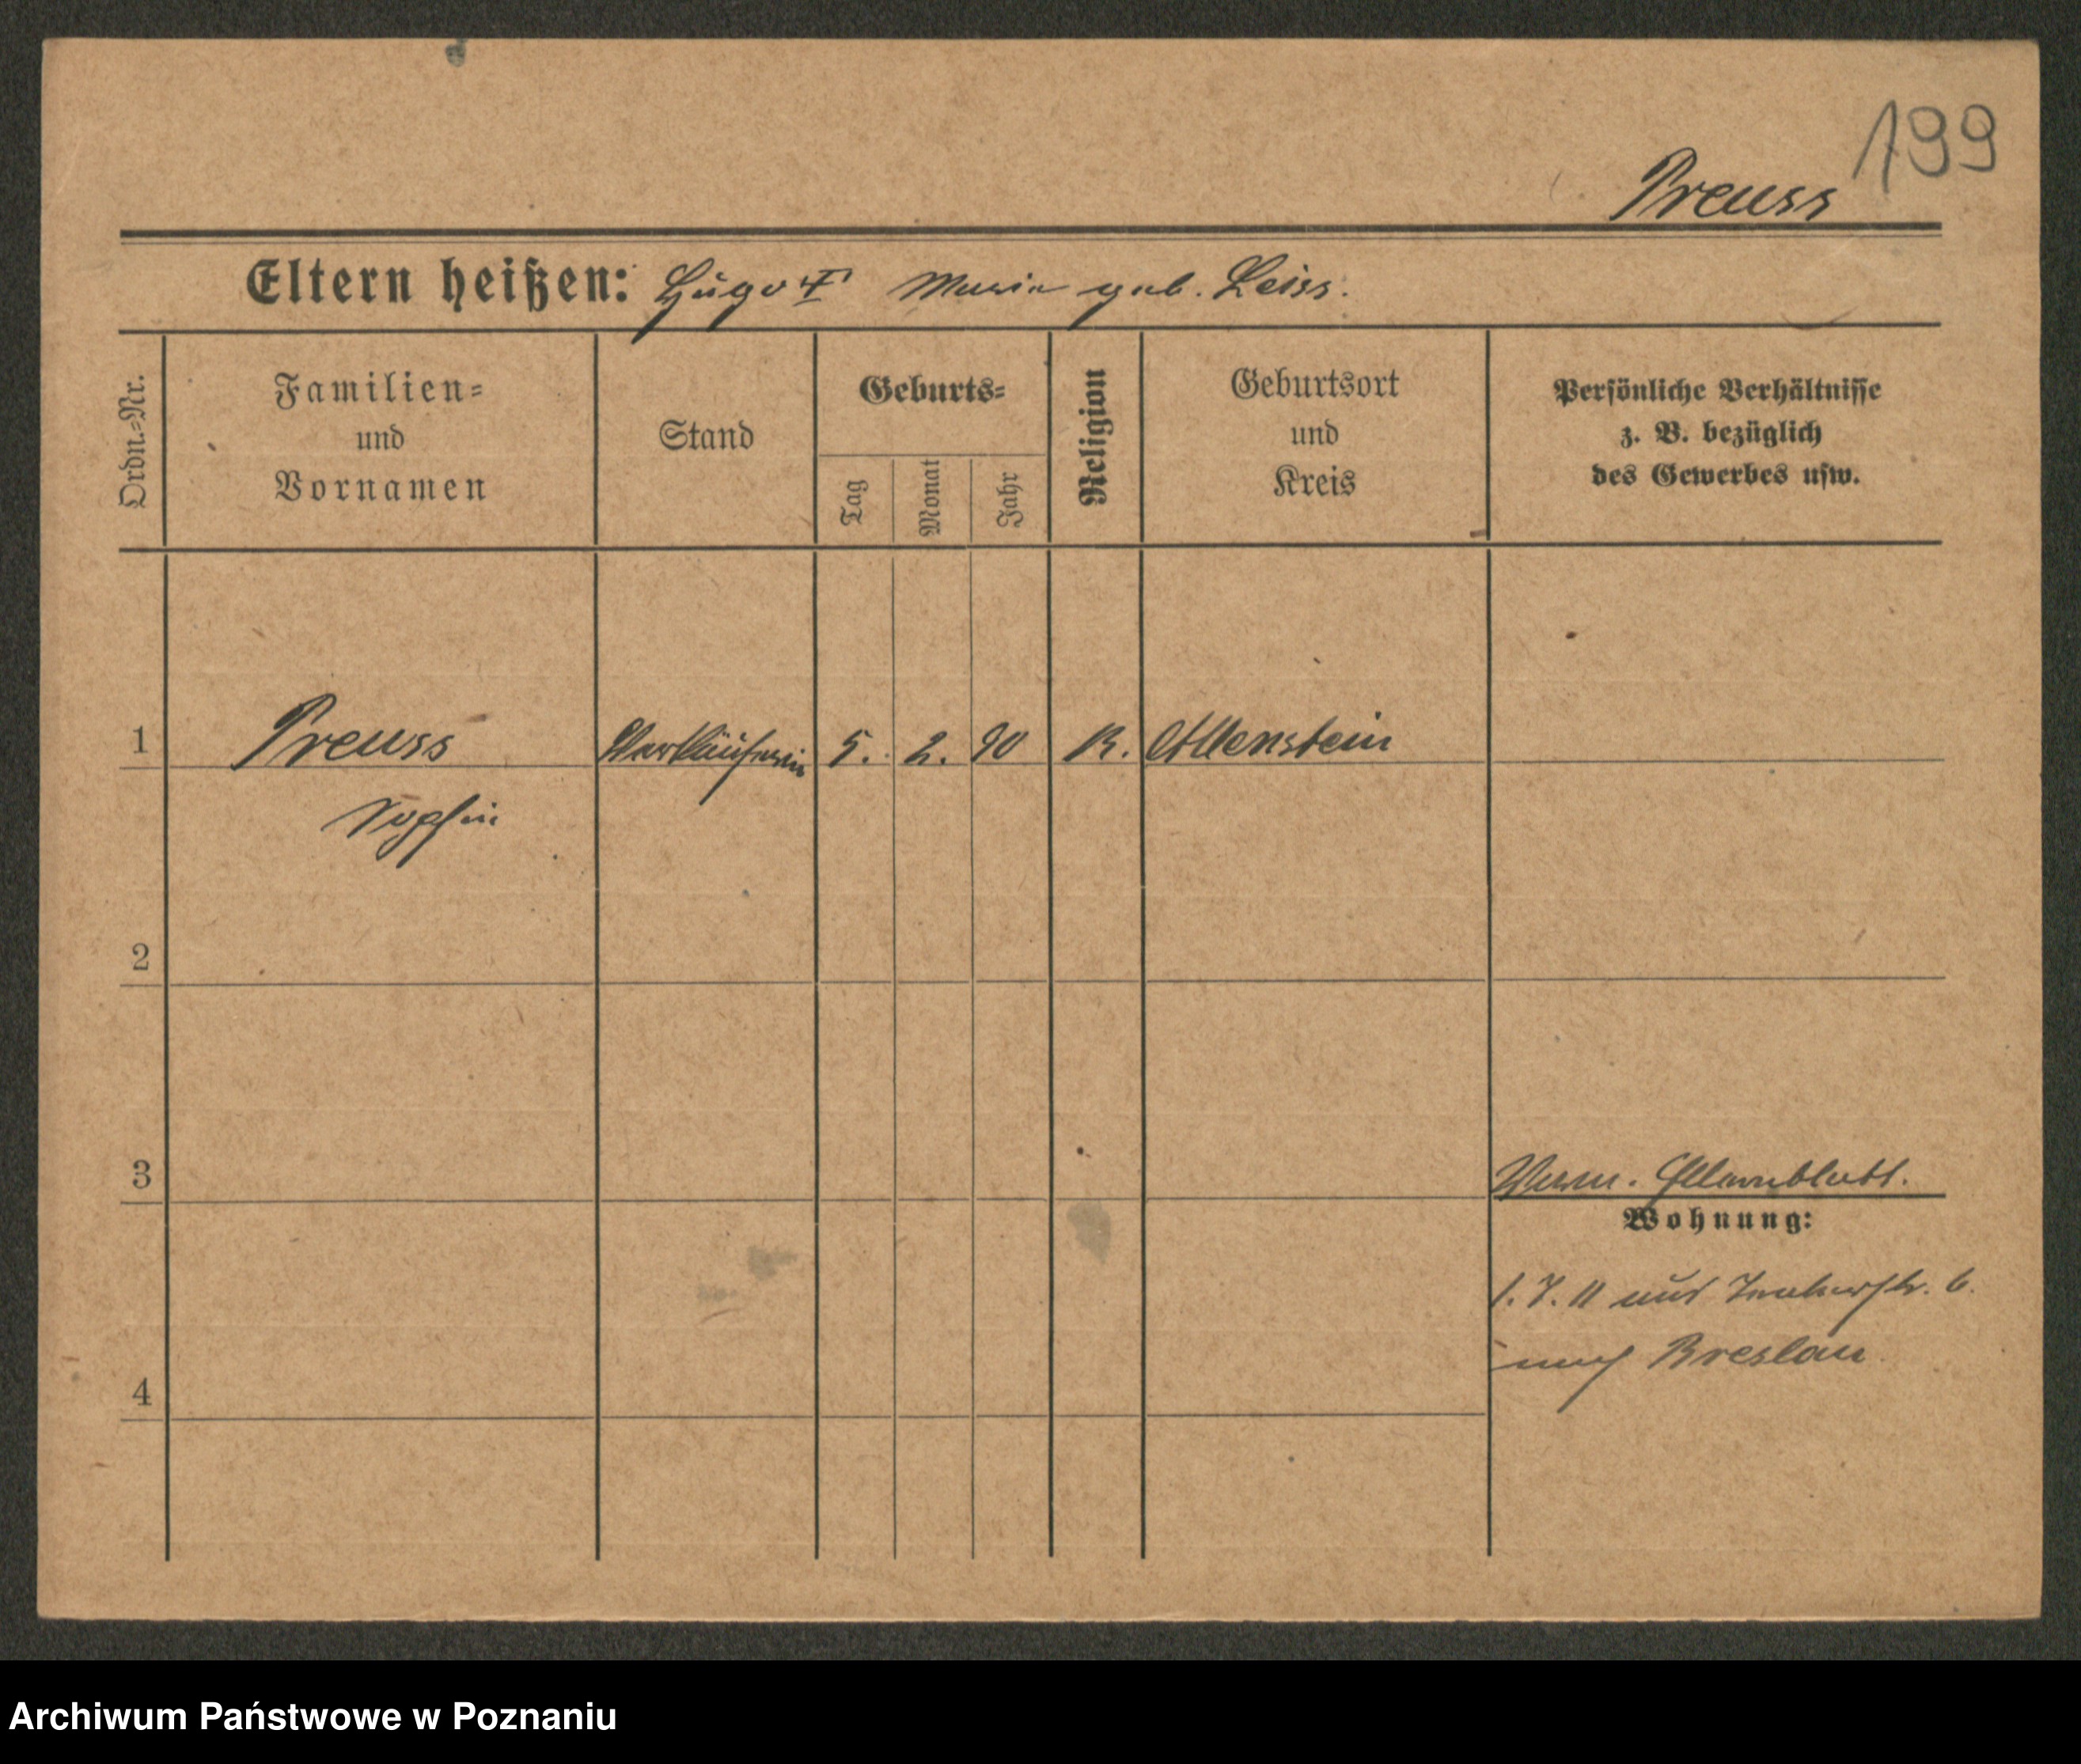 199
Preuss
Eltern heißen: Hugo † Maria geb. Leiss.
Ordn.=Nr.
Familien=
und
Vornamen
Stand
Geburts=
Tag
Monat
Jahr
Religion
Geburtsort
und
Kreis
Persönliche Verhältnisse
z. B. bezüglich
des Gewerbes usw.
1 Preuss Verkäuferin 5. 2. 90 K. Allenstein
Sophie
2
3
Wohnung:
1. 7. 11 aus 6.
nach Breslau
4
Archiwum Państwowe w Poznaniu